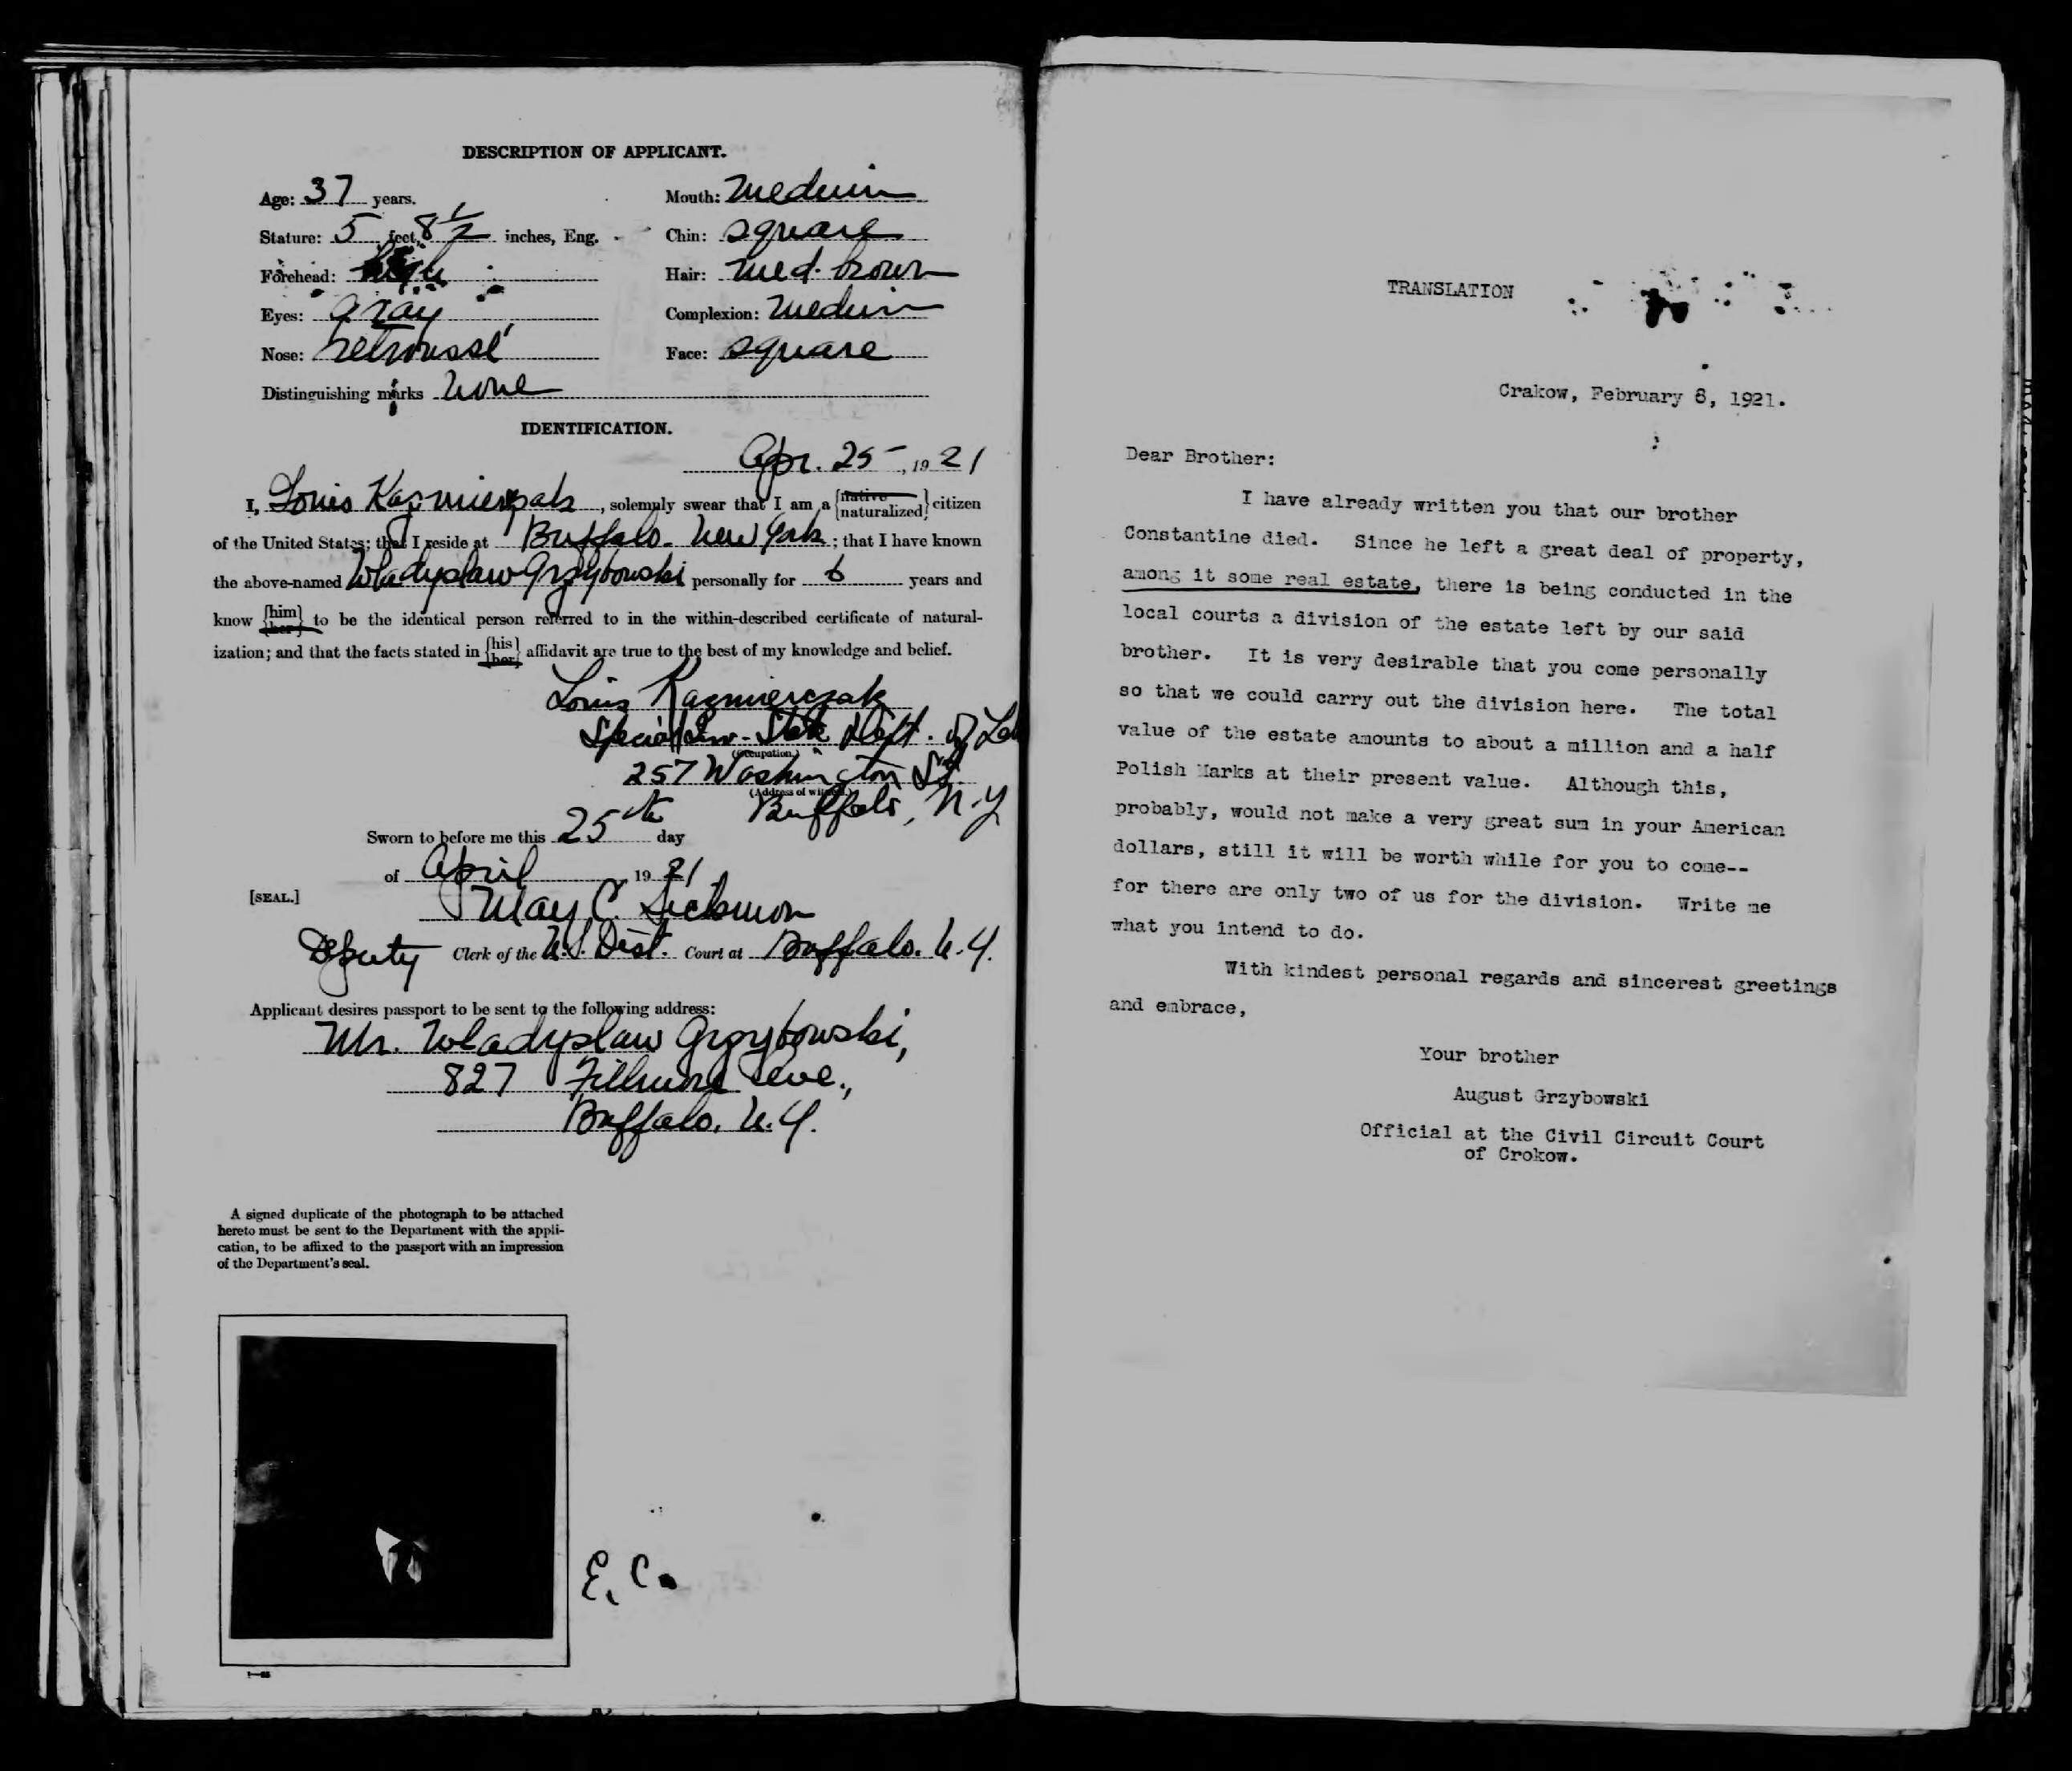 DESCRIPTION OF APPLICANT.
Age: 37 years.
Mouth: Medium
Stature: 5 feet, 8 1/2 inches, Eng.
Chin: square
Forehead: high
Hair: med. brown
Eyes: gray
Complexion: Medium
Nose: retroussé
Face: square
Distinguishing marks None
IDENTIFICATION.
Apr. 25, 1921
I, Louis Kazmierczak, solemnly swear that I am a {native naturalized} citizen
of the United States; that I reside at Buffalo. New York; that I have known
the above-named Wladyslaw Grzybowski personally for 6 years and
know {him her} to be the identical person referred to in the within-described certificate of natural-
ization; and that the facts stated in {his her} affidavit are true to the best of my knowledge and belief.
Louis Kazmierczak
Special Inv. State Dept. of
(Occupation.)
257 Washington St.
(Address of witness.)
Buffalo, N.Y
Sworn to before me this 25th day
of April, 1921
[SEAL.]
May C. Sickmon
Deputy Clerk of the U.S. Dist. Court at Buffalo. N.Y.
Applicant desires passport to be sent to the following address:
Mr. Wladyslaw Grzybowski,
827 Fillmore Ave.,
Buffalo. N.Y.
A signed duplicate of the photograph to be attached
hereto must be sent to the Department with the appli-
cation, to be affixed to the passport with an impression
of the Department's seal.
E. C.
TRANSLATION
Crakow, February 8, 1921.
Dear Brother:
I have already written you that our brother
Constantine died. Since he left a great deal of property,
among it some real estate, there is being conducted in the
local courts a division of the estate left by our said
brother. It is very desirable that you come personally
so that we could carry out the division here. The total
value of the estate amounts to about a million and a half
Polish Marks at their present value. Although this,
probably, would not make a very great sum in your American
dollars, still it will be worth while for you to come--
for there are only two of us for the division. Write me
what you intend to do.
With kindest personal regards and sincerest greetings
and embrace,
Your brother
August Grzybowski
Official at the Civil Circuit Court
of Crokow.